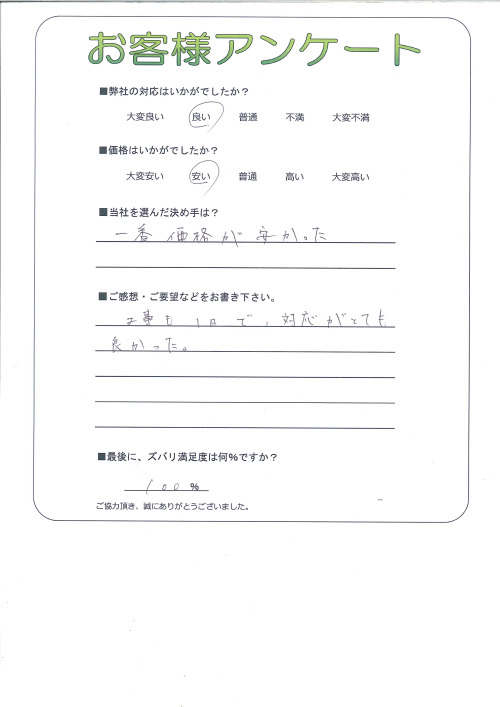 お客様アンケート
■弊社の対応はいかがでしたか？
大変良い 良い 普通 不満 大変不満
■価格はいかがでしたか？
大変安い 安い 普通 高い 大変高い
■当社を選んだ決め手は？
一番価格が安かった
■ご感想・ご要望などをお書き下さい。
工事も1日で、対応がとても
良かった。
■最後に、ズバリ満足度は何%ですか？
100%
ご協力頂き、誠にありがとうございました。